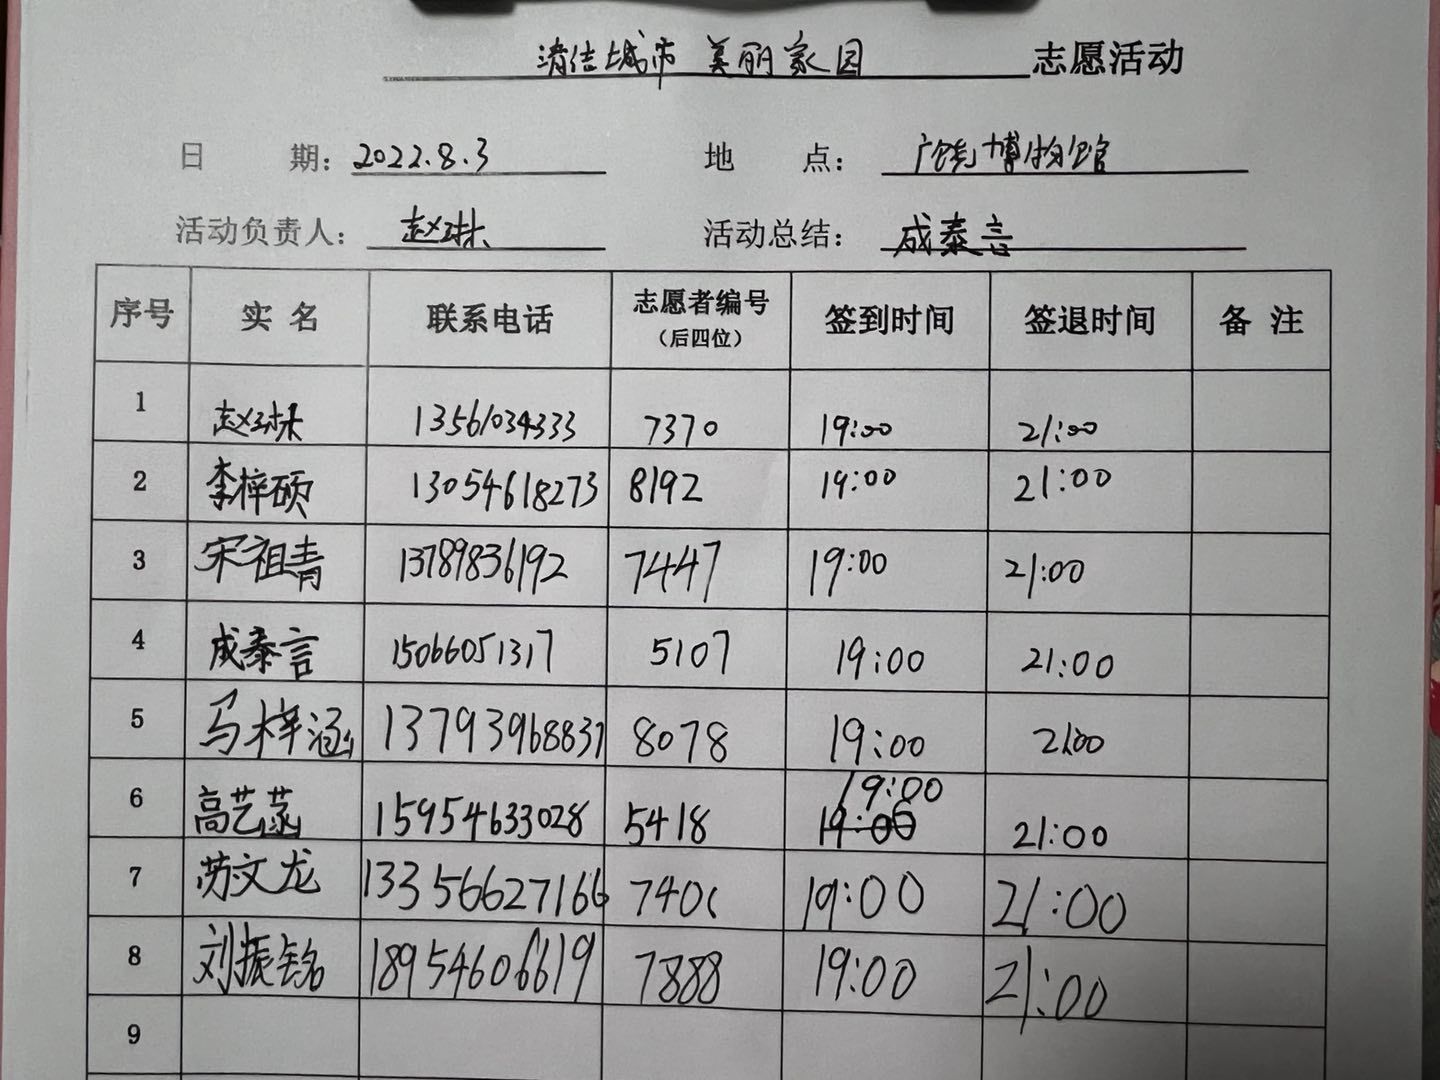 清洁城市 美丽家园 志愿活动
日 期：2022.8.3 地 点：广饶博物馆
活动负责人：赵琳 活动总结：成泰言
序号 实 名 联系电话 志愿者编号（后四位） 签到时间 签退时间 备 注
1 赵琳 13561034333 7370 19:00 21:00
2 李梓硕 13054618273 8192 19:00 21:00
3 宋祖青 13789836192 7447 19:00 21:00
4 成泰言 15066051317 5107 19:00 21:00
5 马梓涵 13793968837 8078 19:00 21:00
6 高艺菡 15954633028 5418 19:00 21:00
7 苏文龙 13356627166 740 19:00 21:00
8 刘振铭 18954606619 7888 19:00 21:00
9